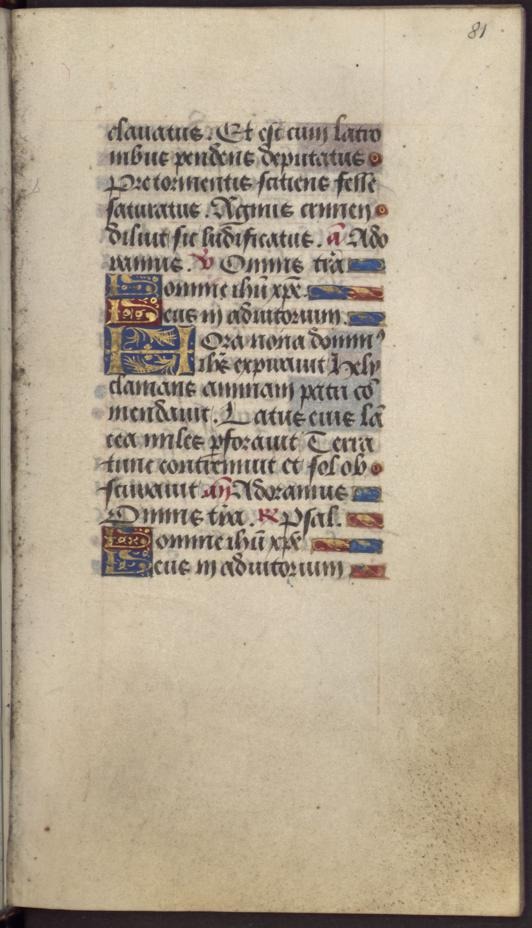 81
clavatus. Et est cum latro
nibus pendens deputatus
Pre tormentis sciens felle
saturatus. Agnus crimen
diluit sic ludificatus. ā Ado
ramus. v̄ Omnis tr̄a
Domine ihū xp̄e
Deus in adiutorium
Hora nona domin⁹
ihs̄ expiravit Hely
clamans animam patri cō
mendavit. Latus eius lā
cea miles p̱foravit Terra
tunc contremuit et sol ob
scuravit añ Adoramus
Omnis tr̄a. R Psal.
Domine ihū xp̄e
Deus in adiutorium